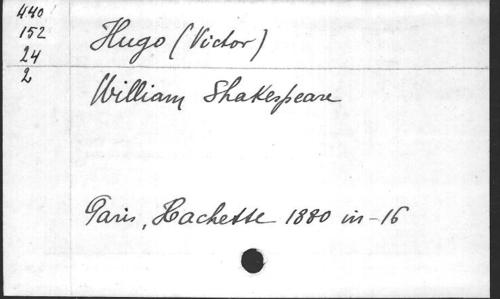 440
152
24
2
Hugo (Victor)
William Shakespeare
Paris, Hachette 1880 in-16